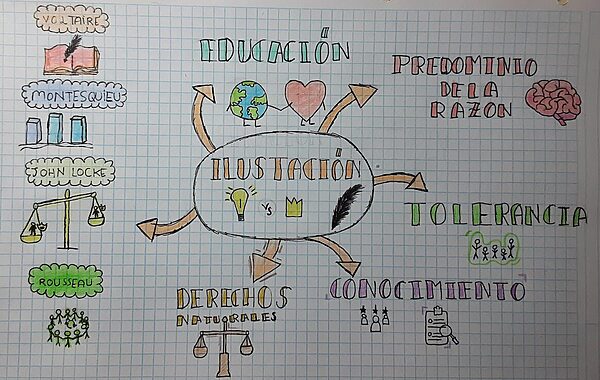 VOLTAIRE
MONTESQUIEU
JOHN LOCKE
ROUSSEAU
EDUCACIÓN
PREDOMINIO
DE LA
RAZÓN
ILUSTACIÓN
VS
TOLERANCIA
CONOCIMIENTO
DERECHOS
NATURALES